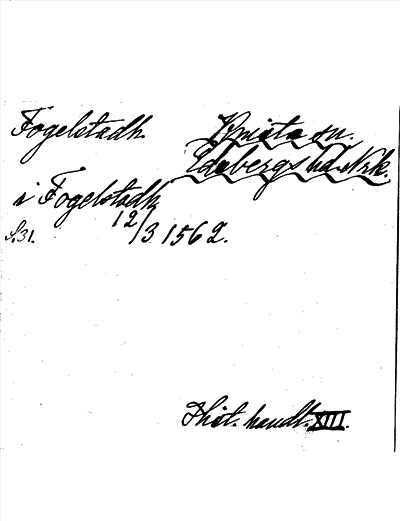 Fogelstadh. Knista sn.
Edsbergs hd. Nrk.
i Fogelstadh
S. 31. 12/3 1562.
Hist. handl. XIII.